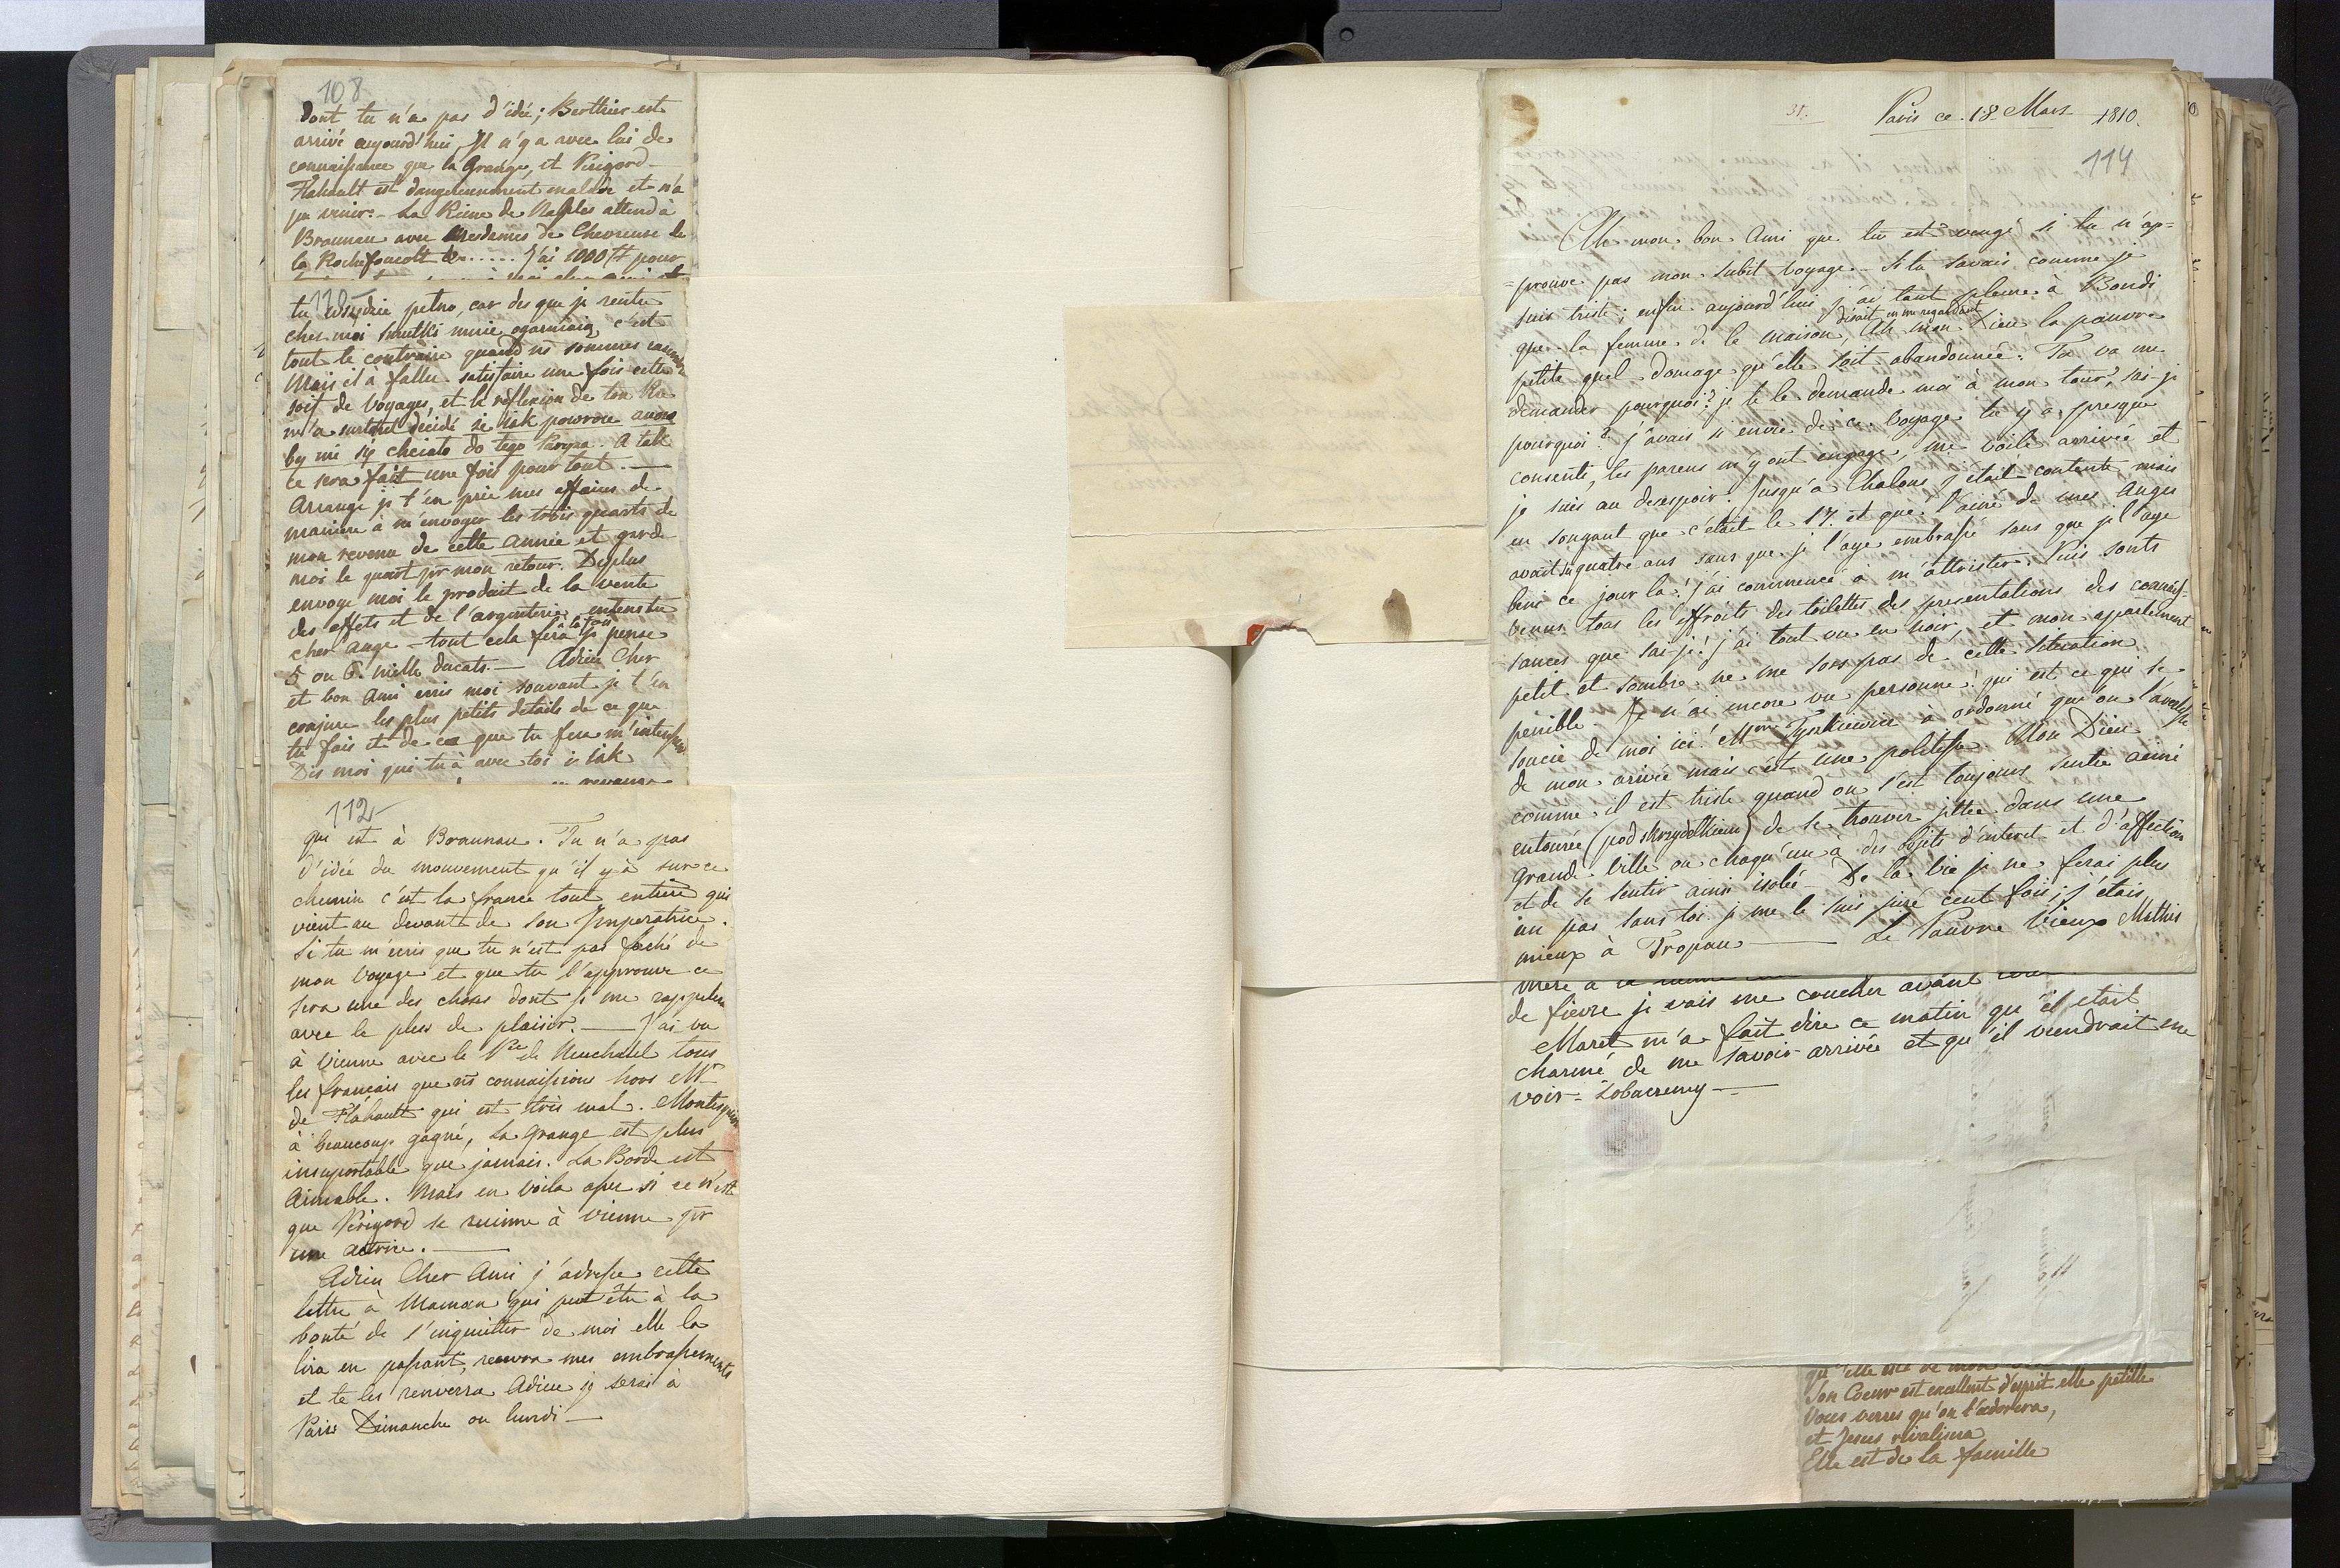 108
dont tu n'a pas d'idée; Berthier est
arrivé aujourd'hui, Il n'y a avec lui de
connaissance que la Grange, et Périgord
Flahault est dangereusement malade et n'a
pu venir. La Reine de Naples attend à
Braunau avec Mesdames de Chevreuse de
la Rochefoucolt &c..... J'ai 1000 # pour
110
tu petno, car des que je rentre
chez moi smutki mnie ogarniaią, c'est
tout le contraire quand ns sommes
Mais il à fallu satisfaire une fois cette
soif de voyages, et la reflexion de ton
m'a surtout decidé że iak powroie
by mi się chciało do tego Paryża. A tak
ce sera fait une fois pour tout. —
Arrange je t'en prie mes affaires de
maniere à m'envoyer les trois quarts de
mon revenu de cette année et garde
moi le quart pr mon retour. Deplus
envoye moi le produit de la vente
des effets et de l'argenterie, entens tu
cher ange — tout cela fera je pense
5 ou 6. mille ducats. — Adieu Cher
et bon Ami ecris moi souvant je t'en
conjure les plus petits details de ce que
tu fais et de ce que tu fera m'interesse
Dis moi qui tu à avec toi i iak
revange
112
qui est à Braunau. Tu n'a pas
d'idée du mouvement qu'il y à sur ce
chemin c'est la france tout entiere qui
vient au devant de son Imperatrice.
Si tu m'écris que tu n'est pas faché de
mon voyage et que tu l'approuve ce
sera une des choses dont je me rappelera
avec le plus de plaisir. — J'ai vu
à Vienne avec le Pce de Neuchatel tous
les français que ns connaissions hors Mr
de Flahault qui est très mal. Montesquiou
à beaucoup gagné, La Grange est plus
insuportable que jamais. La Borde est
Aimable. Mais en voila assez si ce n'est
que Périgord se ruinne à Vienne pr
une actrice. —
Adieu Cher Ami j'adresse cette
lettre à Maman qui peut être à la
bonté de s'inquietter de moi elle la
lira en passant, recevra mes embrassements
et te les renverra Adieu je serai à
Paris Dimanche ou lundi —
31.
Paris ce 18 Mars 1810.
114
Ah mon bon Ami que tu est vengé si tu n'ap=
=prouve pas mon subit voyage. Si tu savais comme je
suis triste; enfin aujourd'hui j'ai tant pleuré à Bondi
que la femme de la maison, disait en me regardant Ah mon Dieu la pauvre
petite quel domage qu'elle soit abandonnée. Tu va me
demander pourquoi? je te le demande moi à mon tour, sai-je
pourquoi? j'avais si envie de ce voyage tu y a presque
consenti, les parens m'y ont engagé, me voilà arrivée et
je suis au desespoir. Jusqu'à Chalons j'étais contente mais
en songant que c'était le 17. et que l'ainé de mes Anges
avait quatre ans sans que je l'aye embrassé sans que je l'aye
beni ce jour là! j'ai commencé à m'attrister. Puis sont
venus tous les effroits des toilettes des presentations des connais=
sances que sai-je! j'ai tout vu en noir, et mon appartement
petit et sombre ne me sors pas de cette situation
penible. Je n'ai encore vu personne! qui est ce qui se
soucie de moi ici! Mme Tyszkiewicz à ordonné qu'on l'avertisse
de mon arivée mais c'est une politesse. Mon Dieu
comme il est triste quand on s'est toujours sentie aimé
entourée (pod skrzydełkiem) de se trouver jettée dans une
grande ville ou chaqu'un à des objets d'interet et d'affection
et de se sentir ainsi isolée — De la vie je ne ferai plus
un pas sans toi je me le suis juré cent fois; j'étais
mieux à Tropau — Le Pauvre Vieux Mathis
de fievre je vais me coucher avant
Maret m'a fait dire ce matin qu'il était
charmé de me savoir arrivée et qu'il viendrait me
voir — Zobaczemy —
Son Coeur est excellent d'esprit elle petille
Vous verres qu'on l'adorera,
et Jesus rivalisera
Elle est de la famille